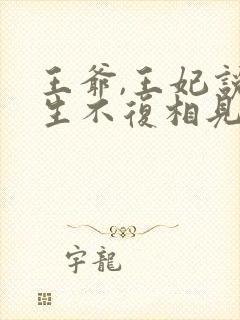 王爷,王妃說
生不復相見
宇龍